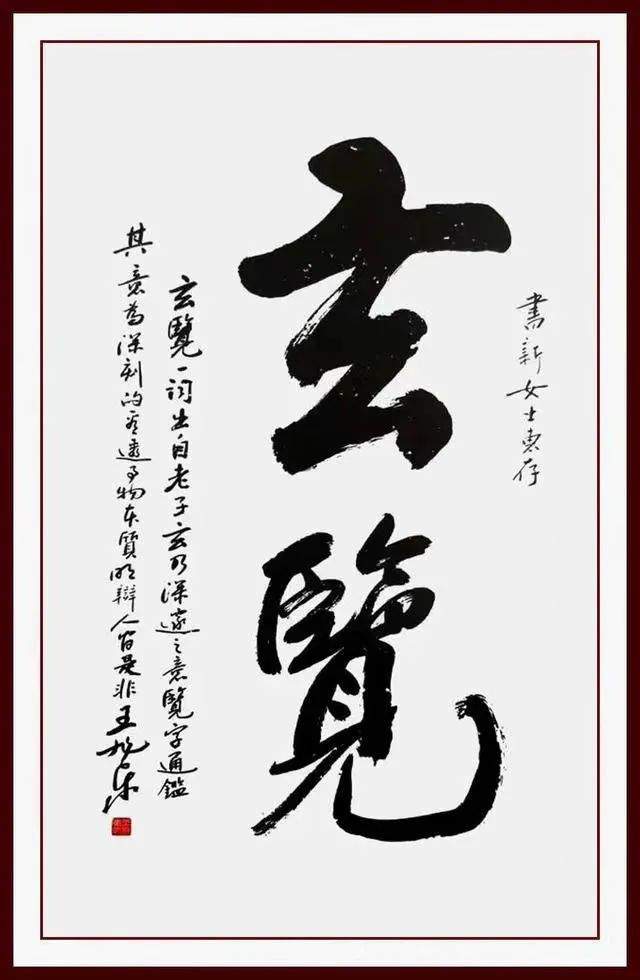 書新女士惠存
玄覽
玄覽一词出自老子玄乃深邃之意覽字通鑑
其意為深刻的看透事物本質明辯人间是非王